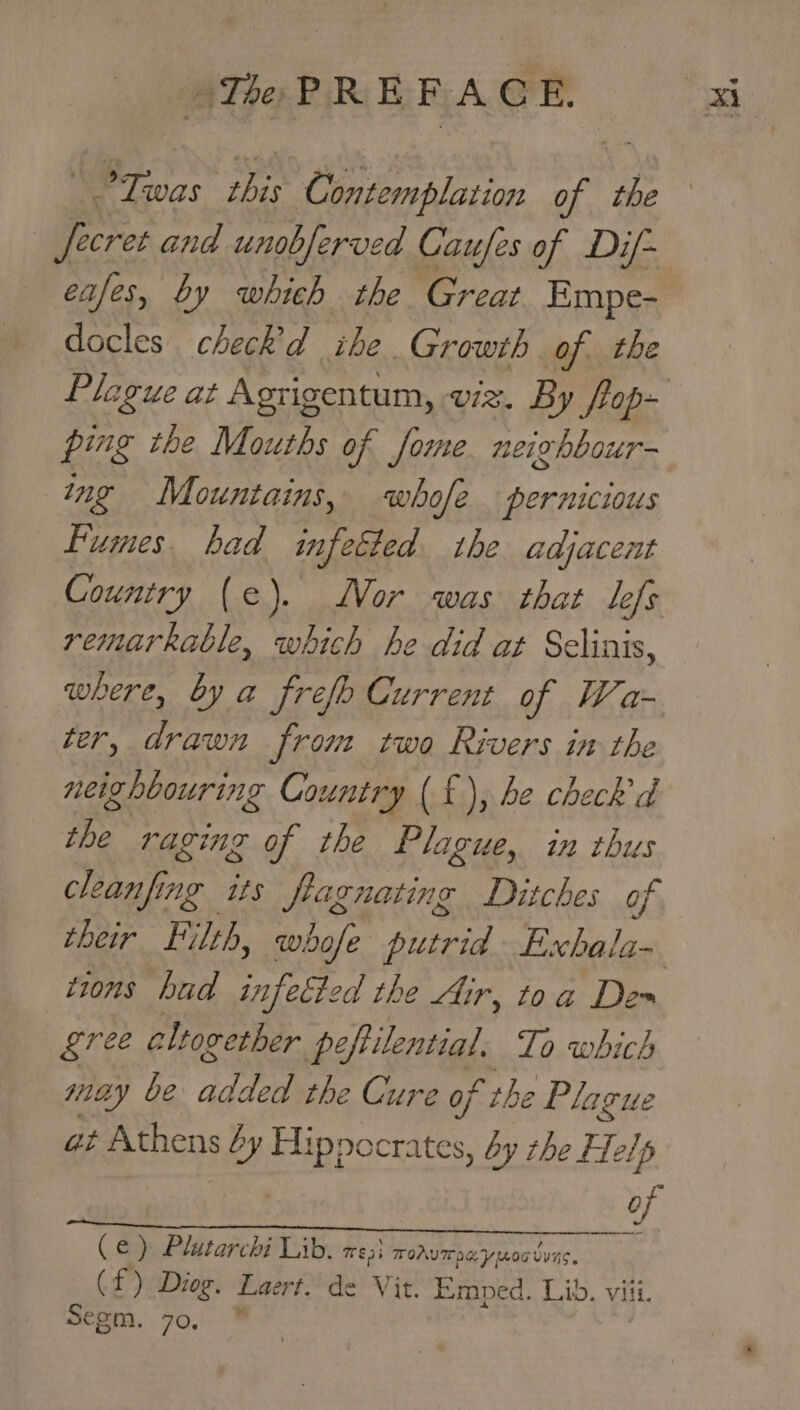 The PREFACE. xi
'Twas this Contemplation of the
ſecret and unobſerved Cauſes of Diſ-
eaſes, by which the Great Empe-
docles check'd the Growth of the
Plague at Agrigentum, viz. By ſtop-
ping the Mouths of ſome neighbour-
ing Mountains, whoſe pernicious
Fumes had infected the adjacent
Country (e). Nor was that leſs
remarkable, which he did at Selinis,
where, by a freſh Current of Wa-
ter, drawn from two Rivers in the
neighbouring Country (f), he check'd
the raging of the Plague, in thus
cleanſing its ſtagnating Ditches of
their Filth, whoſe putrid Exhala-
tions had infected the Air, to a De-
gree altogether peſtilential. To which
may be added the Cure of the Plague
at Athens by Hippocrates, by the Help
of
(e) Plutarchi Lib. περὶ πολυπραγμοσύνης.
(f) Diog. Laert. de Vit. Emped. Lib. viii.
Segm. 70.